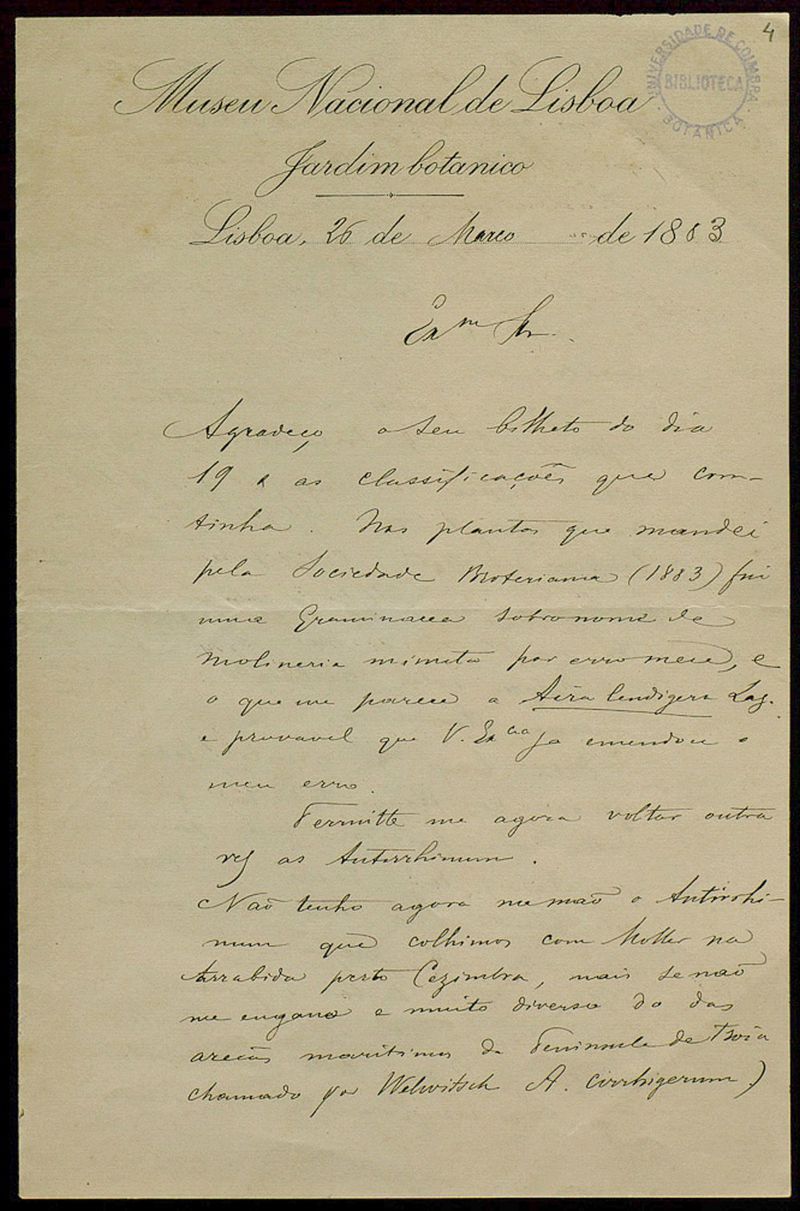 4
UNIVERSIDADE DE COIMBRA
BIBLIOTECA
BOTANICA
Museu Nacional de Lisboa
Jardim botanico
Lisboa, 26 de Março de 1883
Exm Sr.
Agradeço o seu bilheto do dia
19 e as classificações que con-
tinha. Nas plantas que mandei
pela Sociedade Broteriana (1883) fui
uma Graminacea sobro nome de
Molineria minuta por erro meu, e
o que me parece a Aira lendigera Lag.
e provavel que V. Excia ja emendou o
meu erro.
Permitte me agora voltar outra
vez as Anterrhinum.
Não tenho agora na mão o Antirrhi-
num que colhimos com Moller na
Arrabida perto Cezimbra, mais se não
me engano e muito diverso do das
areas maritimas da Peninsula de Troia
chamado por Welwitsch A. cirrhigerum)